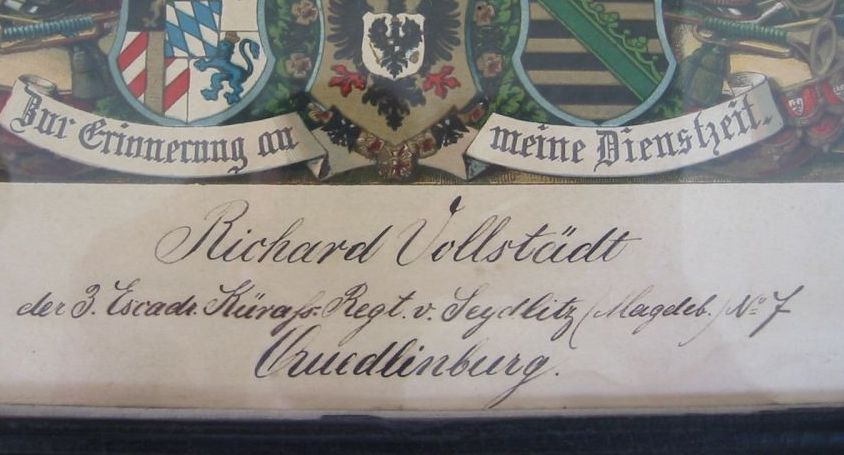 Zur Erinnerung an meine Dienstzeit.
Richard Vollstädt
der 3. Escadr. Küraſs. Regt. v. Seydlitz (Magdeb.) No 7
Quedlinburg.